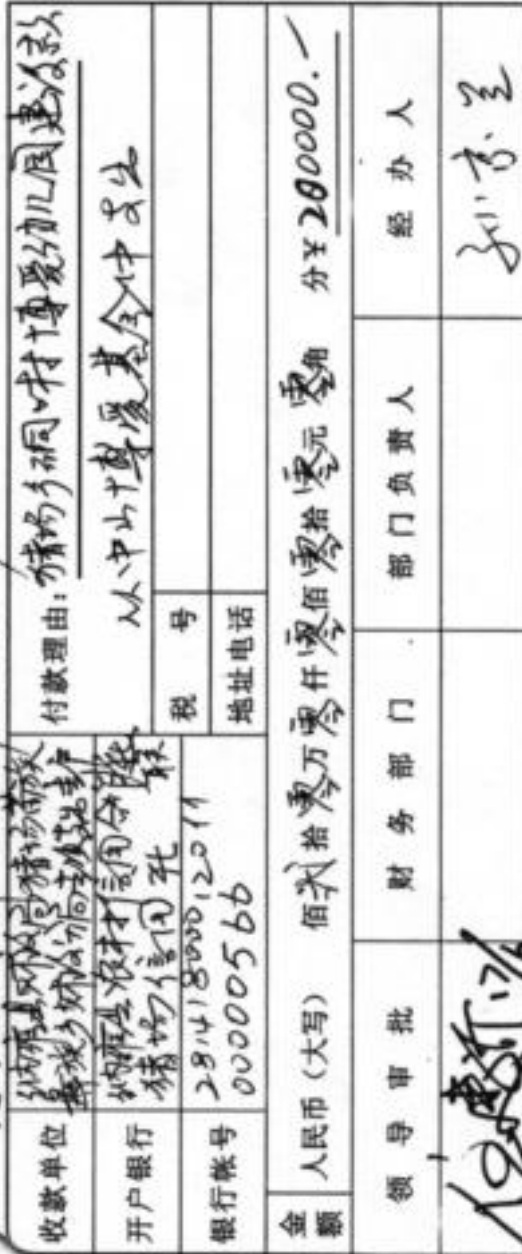 收款单位 纳雍县财政局猪场苗族
彝族乡财政分局
付款理由：猪场乡硐口村博爱幼儿园建设款
从中山博爱基金中支出
开户银行 纳雍县农村信用合作联社
猪场信用社
税 号
银行帐号 2814180001201
000000566
地址电话
金额 人民币（大写） 佰贰拾零万零仟零佰零拾零元零角 分￥200000.—
领导审批 财务部门 部门负责人 经办人